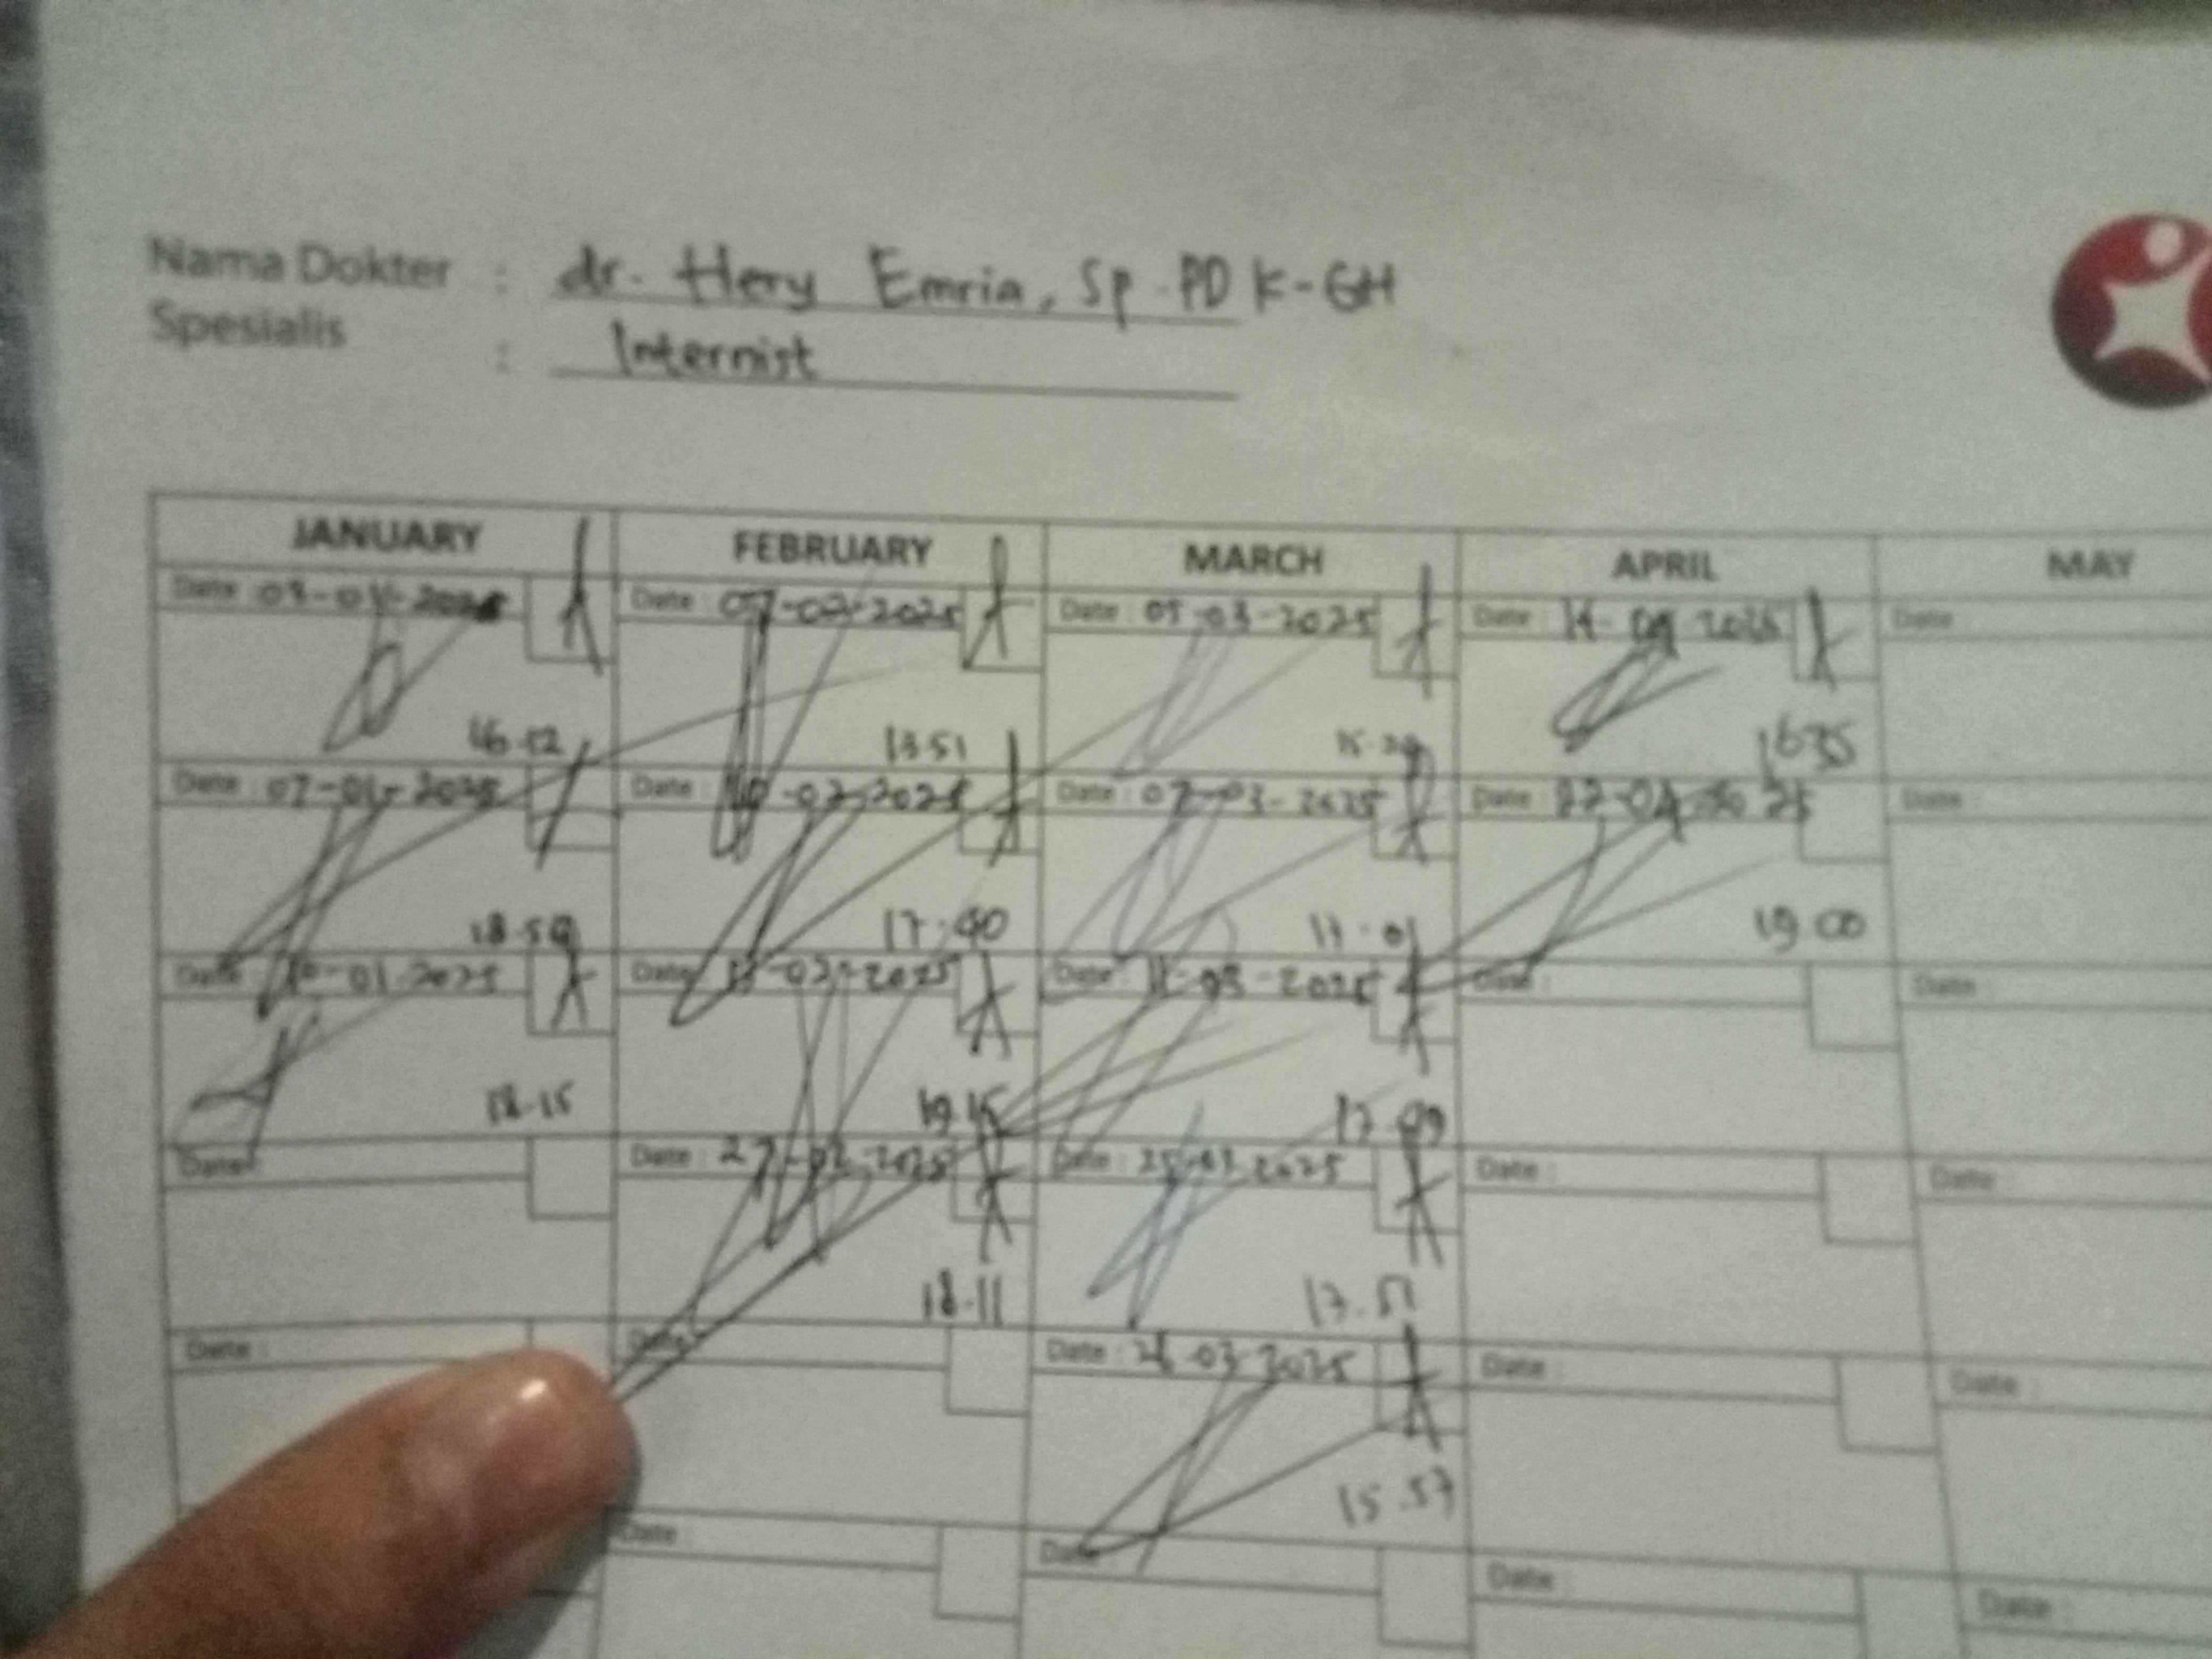 Nama Dokter : dr. Hery Emria, Sp.PD K-GH
Spesialis : Internist
JANUARY FEBRUARY MARCH APRIL MAY
Date : 03-01-2025 Date : 07-02-2025 Date : 05-03-2025 Date : 14-04 2025 Date :
16.12 13.51 15. 1635
Date : 07-01-2025 Date : 10-02-2025 Date : 07-03-2025 Date : 22-04-2025 Date :
18.50 17.40 17.01 19.00
Date : 10-01-2025 Date : -02-2025 Date : 11-03-2025 Date : Date :
18.15 19.15 17.49
Date : Date : 27-02-2025 Date : 25-03 2025 Date : Date :
18.11 17.51
Date : Date : Date : 26-03-2025 Date : Date :
15.57
Date : Date : Date : Date :